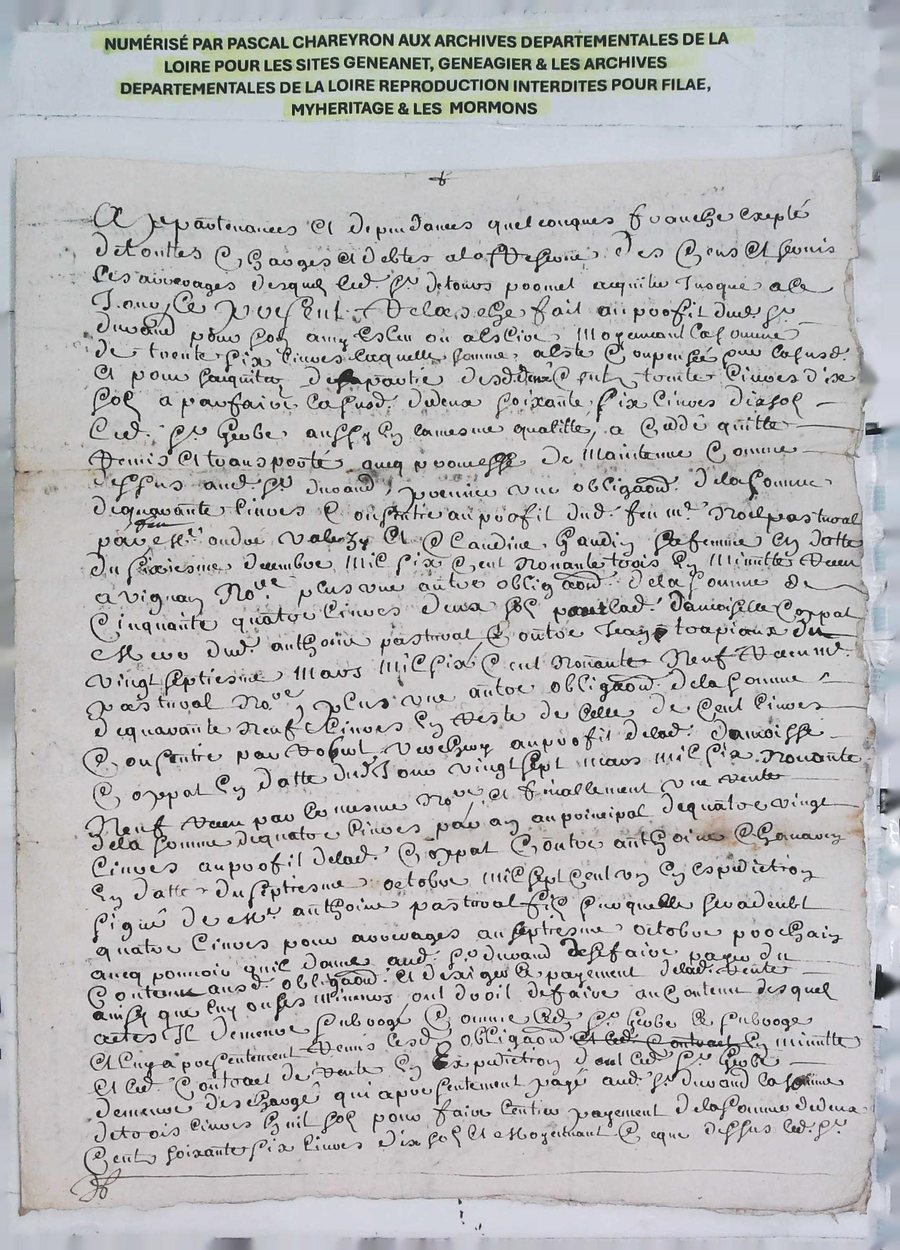 NUMÉRISÉ PAR PASCAL CHAREYRON AUX ARCHIVES DEPARTEMENTALES DE LA
LOIRE POUR LES SITES GENEANET, GENEAGIER & LES ARCHIVES
DEPARTEMENTALES DE LA LOIRE REPRODUCTION INTERDITES POUR FILAE,
MYHERITAGE & LES MORMONS
Apartenances et dependances quelconques franche exepté
de touttes charges et debtes a la reserve des cens et servis
les arrerages desquels led. sr promet acquiter jusque a ce
jourd present fait au profit dud. sr
durand pour son amy esleu ou a eslire moyennant la somme
de trente six livres laquelle somme a esté compensée par lasusd.
et pour acquitter de partie desd. deux cent trente livres dix
sols a parfaire lasusd. de deux soixante six livres dix sols
led. sr aussy en la mesme quallitte a ceddé quitte
remis et transporté avecq promesse de maintenue comme
dessus aud. sr durand, premier une obligaõn de la somme
de quarante livres consentie au profit dud. feu mr noel pastural
par mr valezy et Claudine Gaudin sa femme en datte
du sixiesme decembre mil six cent nonante trois en minutte receu
avignan nore plus une autre obligaõn de la somme de
cinquante quatre livres deux sols par lad. damoiselle coppat
mere dud. anthoine pastural contre Jean trapiaux du
vingt septiesme mars mil six cent nonante neuf receu mr
pastural nore, plus une autre obligaõn de la somme
de quarante neuf livres en reste de celle de cent livres
consentie par au profit de lad. damoiselle
coppat en datte dud. jour vingt sept mars mil six nonante
neuf receu par le mesme nore, et finallement une rente
de la somme de quatre livres par an au principal de quatre vingt
livres au profit de lad. coppat contre anthoine
en datte du septiesme octobre mil sept cent un en expedition
signé de mr anthoine pastural fils
quatre livres pour arrerages au septiesme octobre prochain
avecq pouvoir quil donne aud. sr durand de se faire payer du
contenu ausd. obligaõn et dexiger le payement de lad. rente
ainsy que luy ou ses mineurs ont droit de faire au contenu desquel
actes il demeure subrogé comme led. sr le subroge
et luy a presentement remis lesd. obligaõn et led. contract en minutte
et led. contract de rente en expedition dont led. sr
demeure deschargé qui a presentement payé aud. sr durand la somme
de trois livres huit sols pour faire lentier payement de la somme de deux
cent soixante six livres dix sols et moyennant ce que dessus led. sr